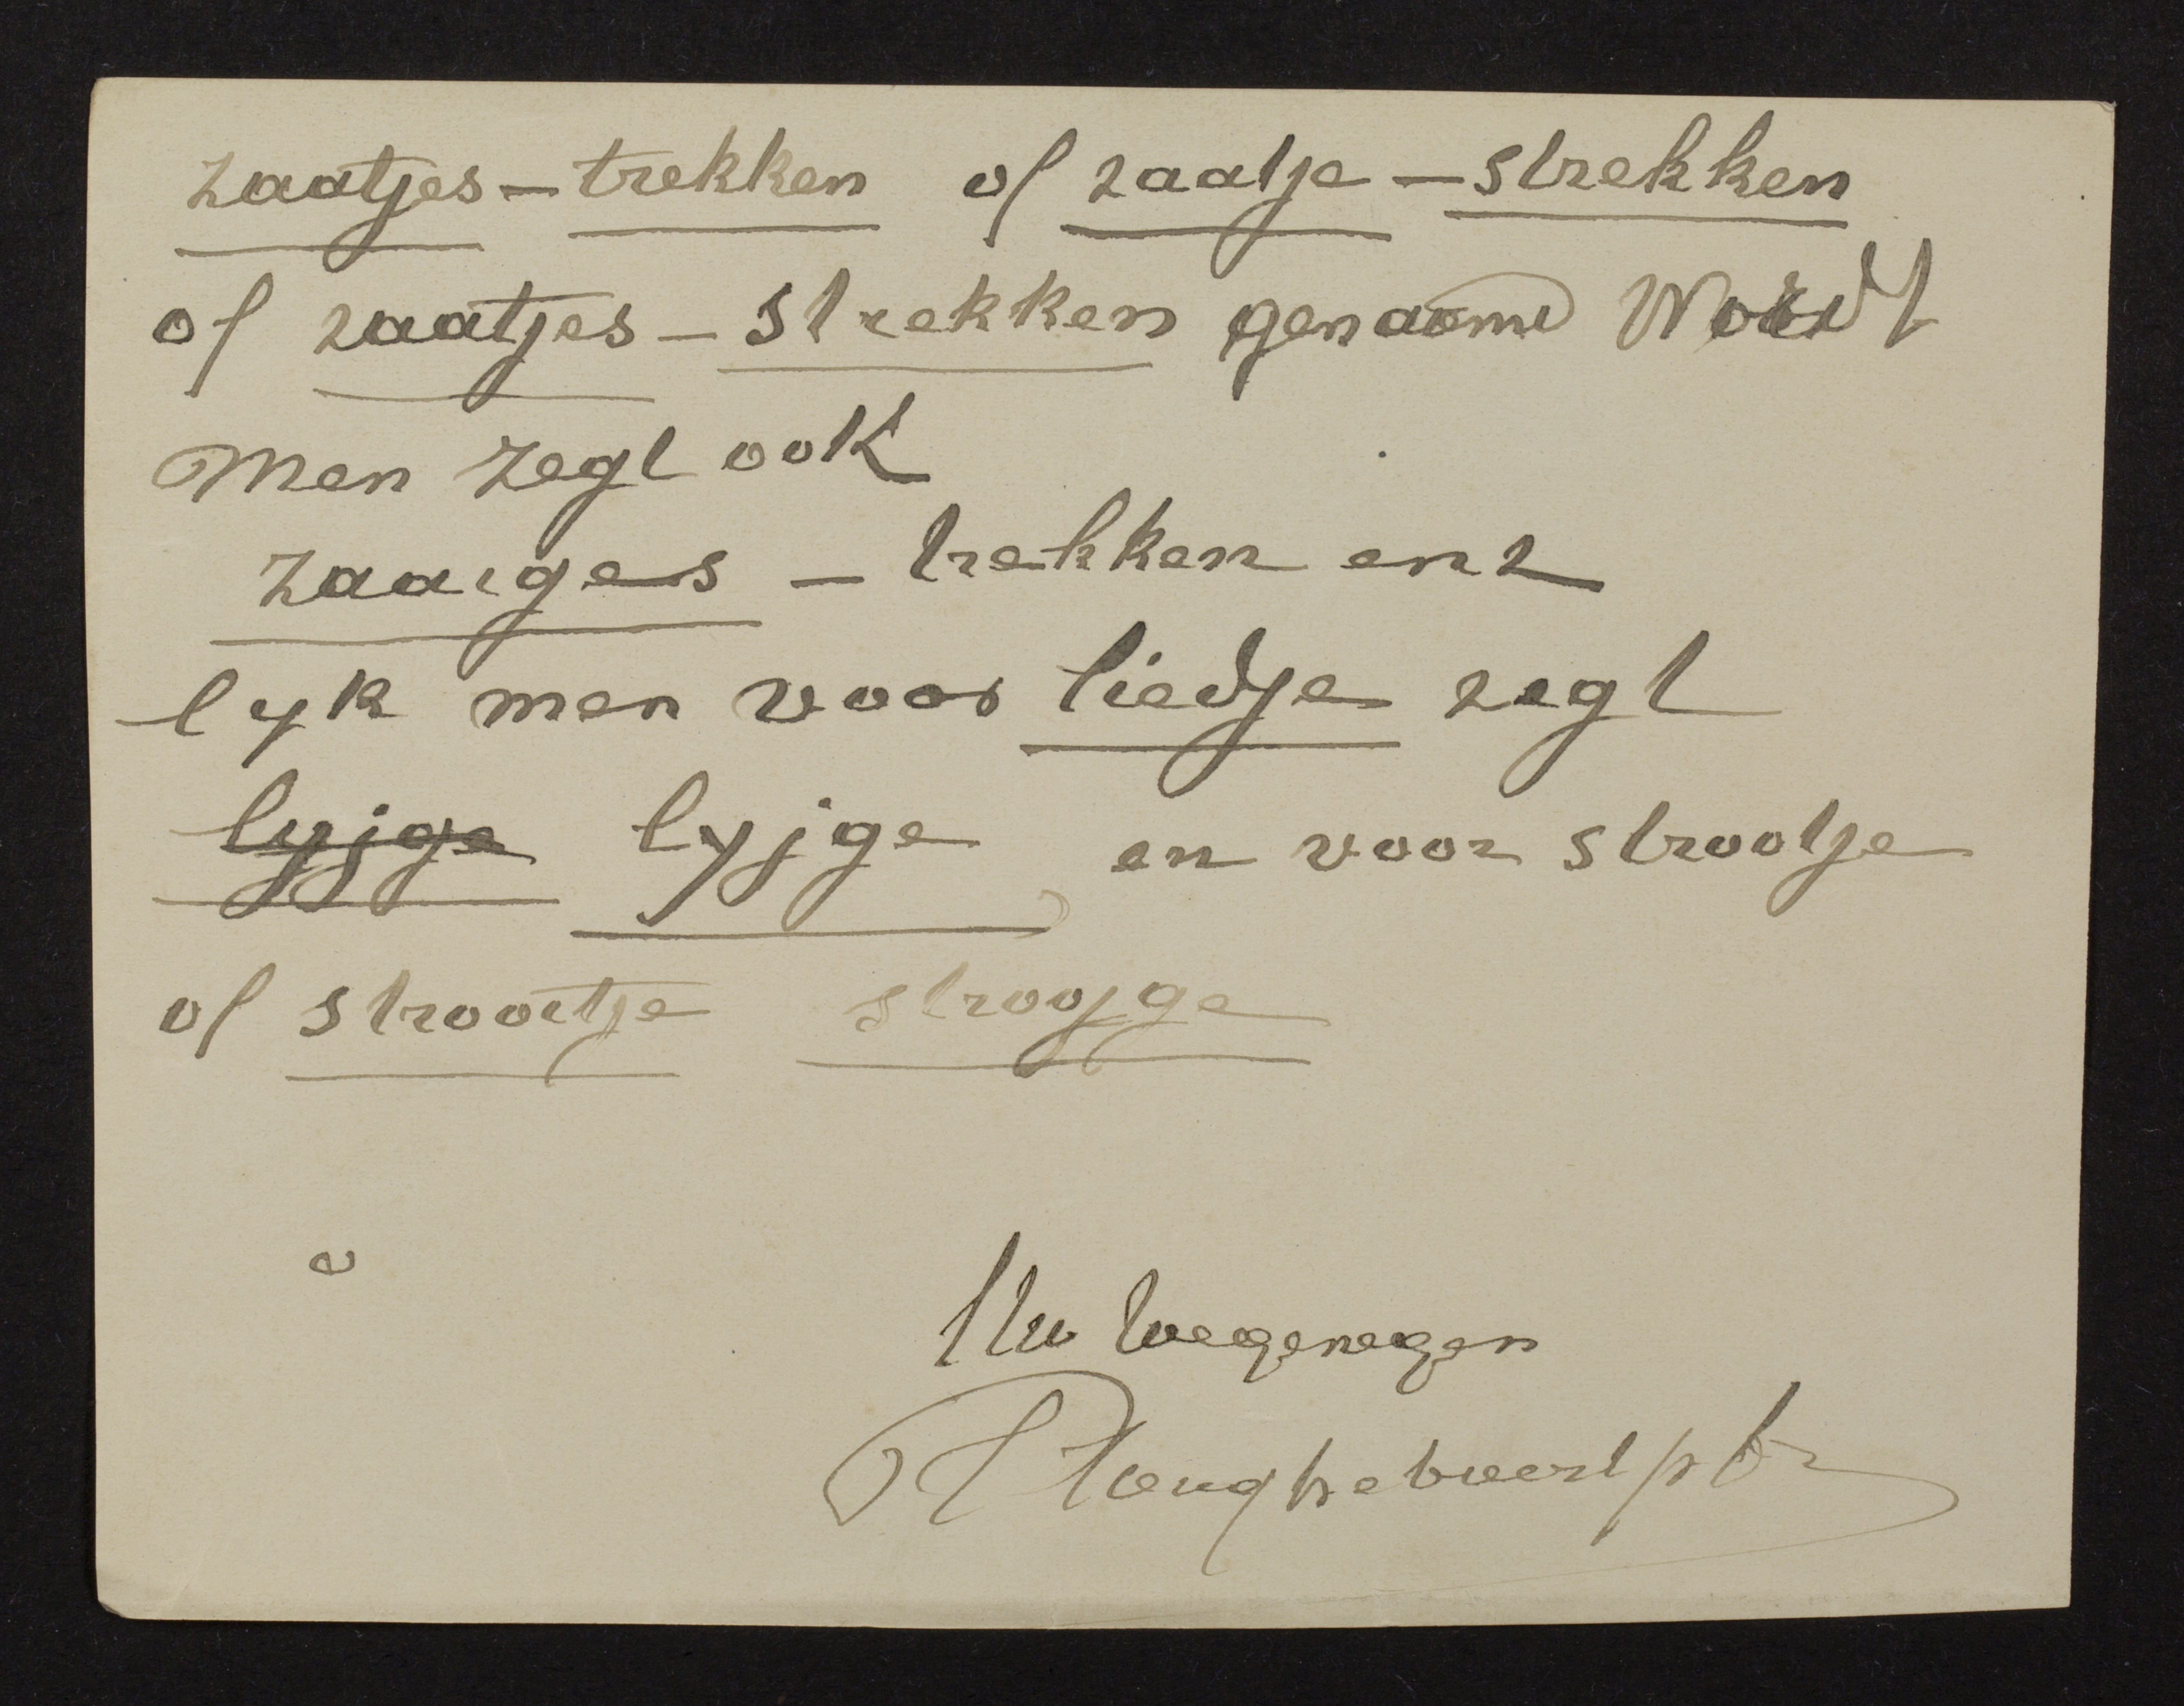 zaatjes - trekken of zaatje - strekken
of zaatjes - strekken genaamd Wordt
Men zegt ook
zaaiges - trekken enz
lyk men voor liedje zegt
lyjge lyjge en voor strootje
of strooitje strooyge
Uw toegenegen